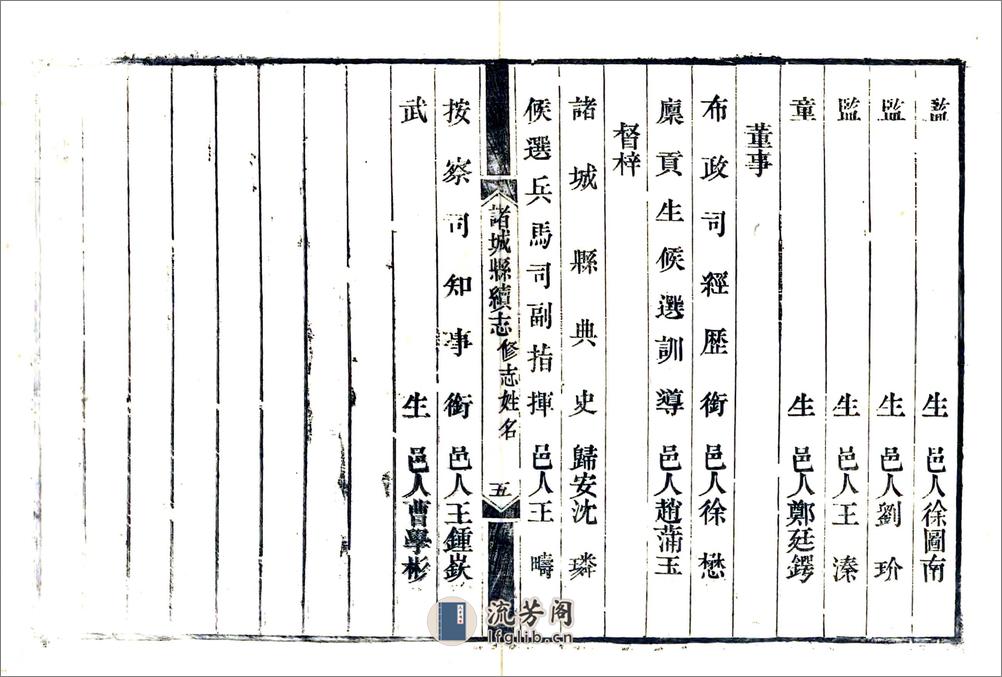 監生 邑人徐圖南
監生 邑人劉玠
監生 邑人王溱
童生 邑人鄭廷鍔
董事
布政司經歷銜 邑人徐懋
廩貢生候選訓導 邑人趙蒲玉
督梓
諸城縣典史 歸安沈璘
候選兵馬司副指揮 邑人王疇
諸城縣續志 修志姓名 五
按察司知事銜 邑人王鍾嶔
武生 邑人曹學彬
流芳阁
lfglib.cn